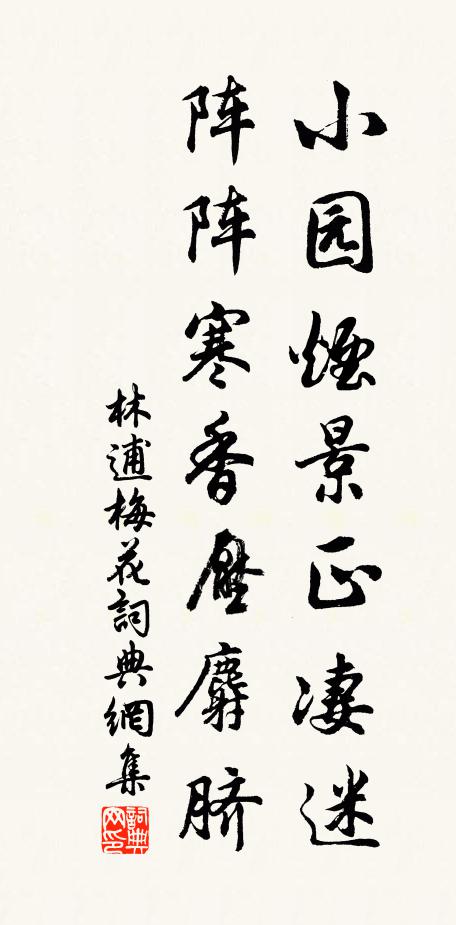 小园煙景正凄迷
阵阵寒香壓麝脐
林逋梅花詞典網集
詞典
网印